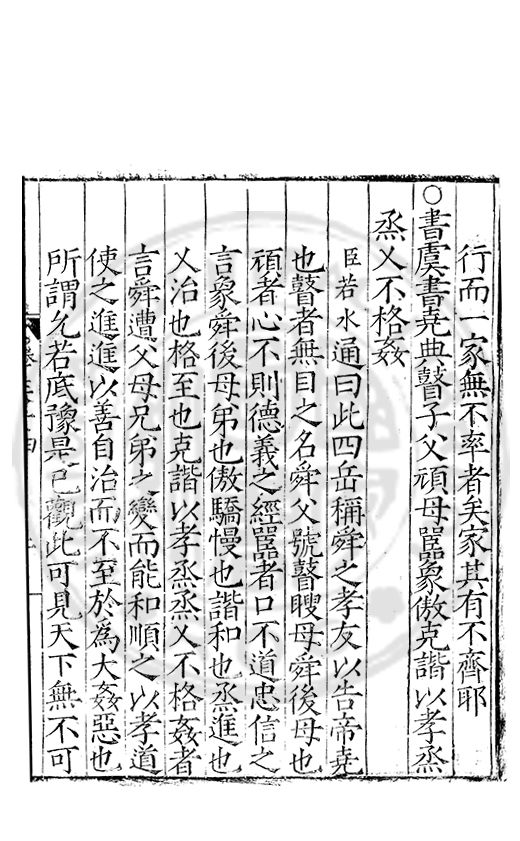 行而一家無不率者矣家其有不齊耶
○書虞書堯典瞽子父頑母嚚象傲克諧以孝烝
烝乂不格姦
臣若水通曰此四岳稱舜之孝友以告帝堯
也瞽者無目之名舜父號瞽瞍母舜後母也
頑者心不則德義之經嚚者口不道忠信之
言象舜後母弟也傲驕慢也諧和也烝進也
乂治也格至也克諧以孝烝烝乂不格姦者
言舜遭父母兄弟之變而能和順之以孝道
使之進進以善自治而不至於爲大姦惡也
所謂允若底豫是已觀此可見天下無不可